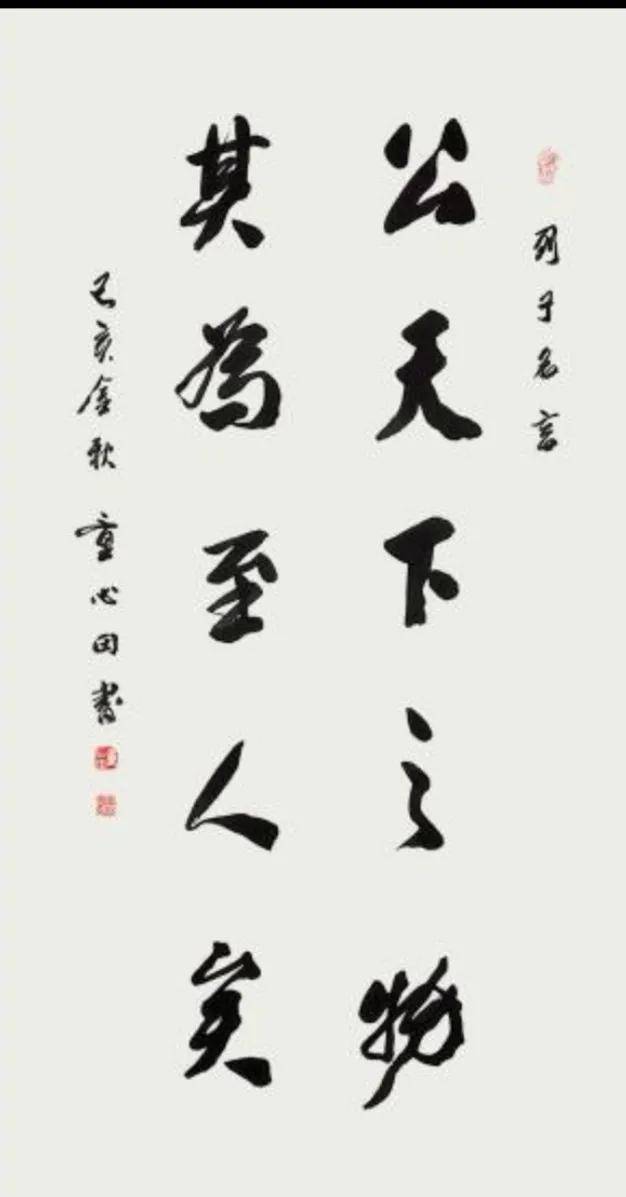 列子名言
公天下之物
其為至人矣
己亥金秋 童心田書